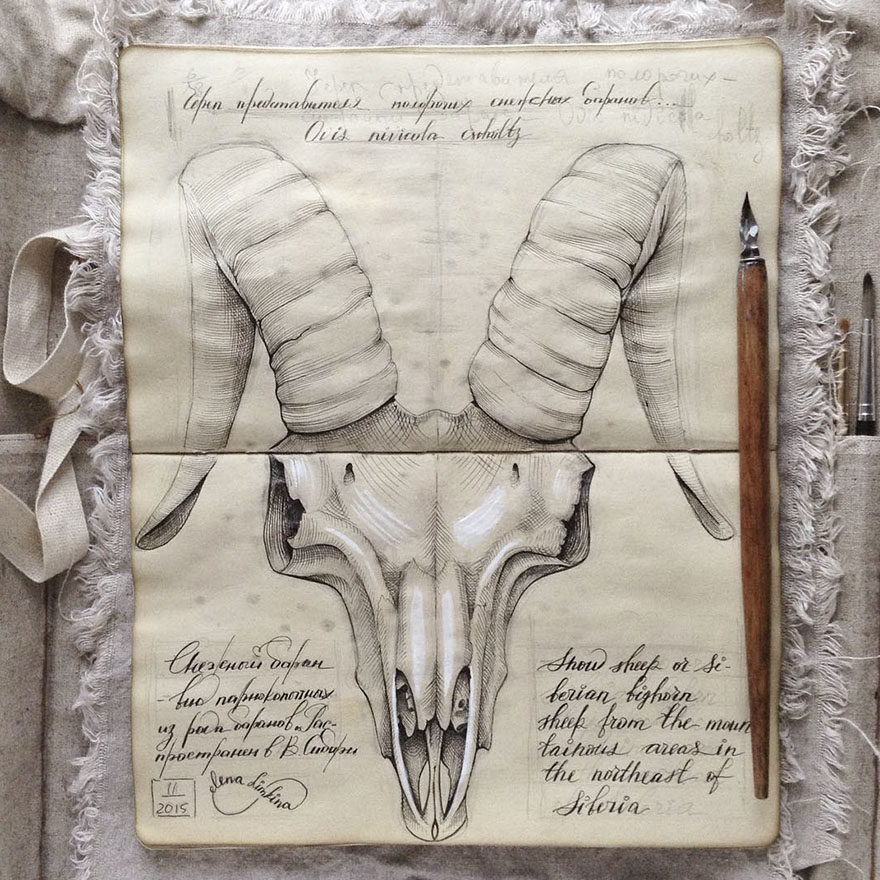 Череп представителя полорогих снежных баранов...
Ovis nivicola eschöltz
Снежный баран
- вид парнокопытных
из рода баранов. Рас-
пространен в В. Сибири
11
2015
elena limkina
Snow sheep or si-
berian bighorn
sheep from the moun
tainous areas in
the northeast of
Siberia